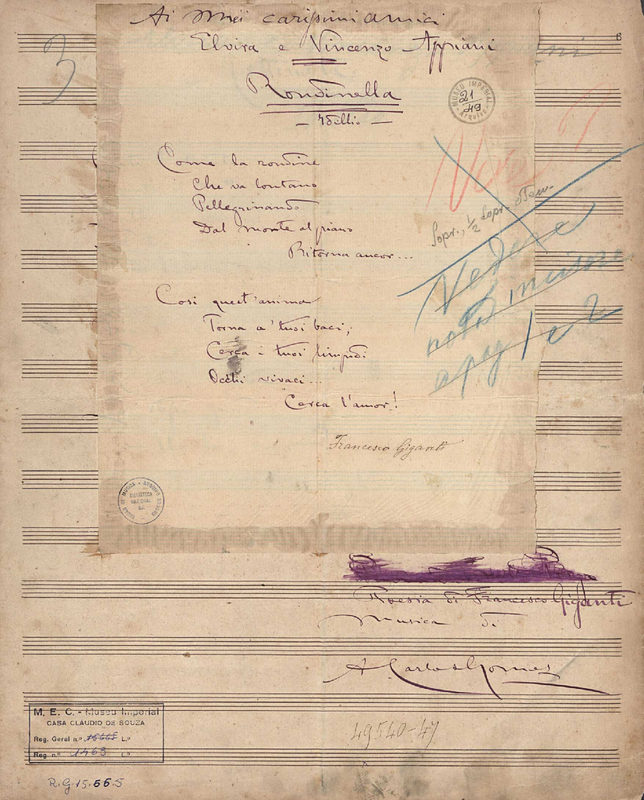 Ai miei carissimi amici
3
Elvira e Vincenzo Appiani
Rondinella
MUSEU IMPERIAL
21
49
Arquivo
Come la rondine
Che va lontano
Pellegrinando
Dal monte al piano
Ritorna ancor...
Sopr., ½ Sopr. o Ten.
Vedere
Così quest'anima
Torna a' tuoi baci;
Cerca i tuoi limpidi
Occhi vivaci...
Cerca l'amor!
Francesco Giganti
BIBLIOTECA
NACIONAL
Poesia di Francesco Giganti
Musica di
A. Carlos Gomes
M. E. C. - Museu Imperial
CASA CLAUDIO DE SOUZA
Reg. Geral n.º L.º
Reg. n.º 1463 L.º
49540-47
R.G. 15.665